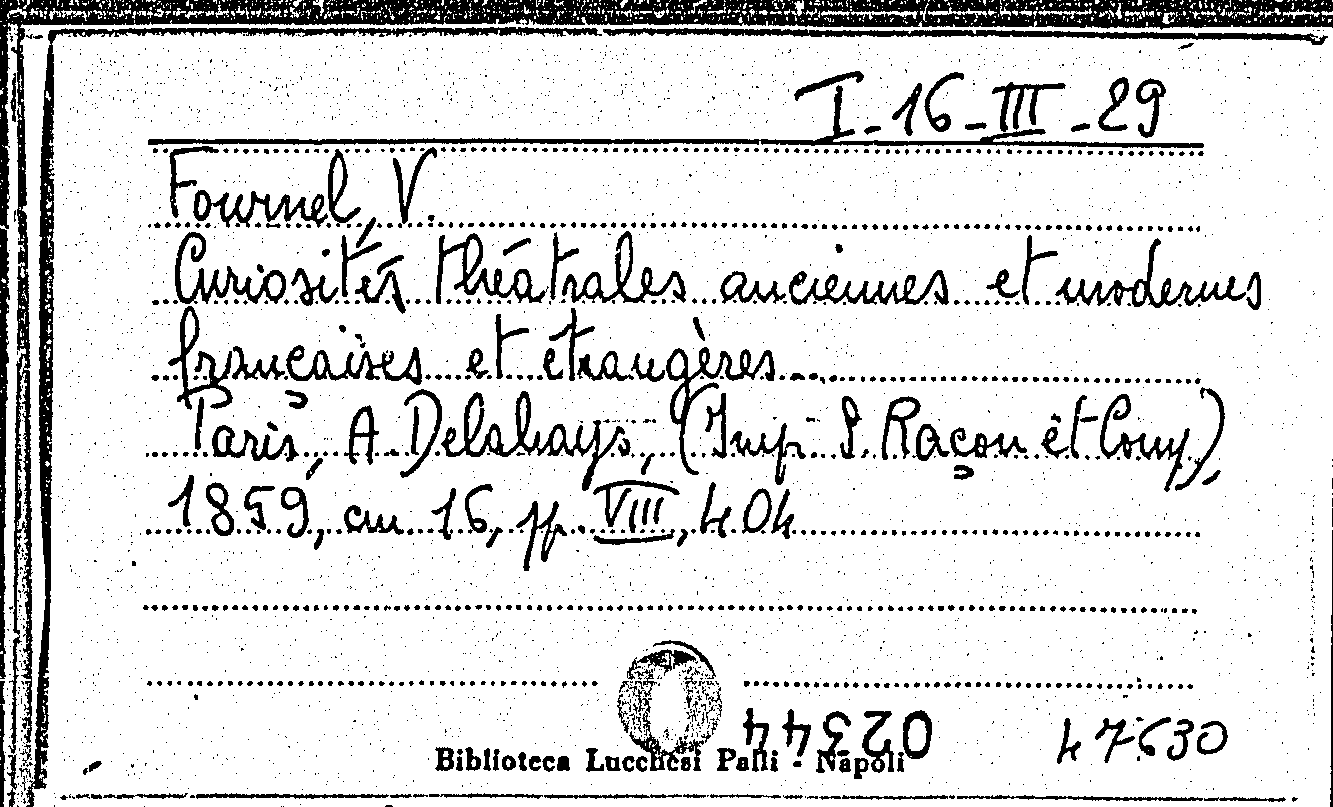 I-16-III-29
Fournel, V.
Curiosités théâtrales anciennes et modernes
françaises et étrangères...
Paris, A. Delahays, (Imp. S. Raçon et Comp),
1859, in 16, pp. VIII, 404
02344
47630
Biblioteca Lucchesi Palli - Napoli